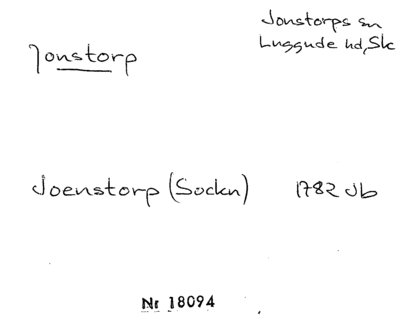 Jonstorps sn
Luggude hd, Sk
Jonstorp
Joenstorp (Sockn) 1782 Jb
Nr 18094